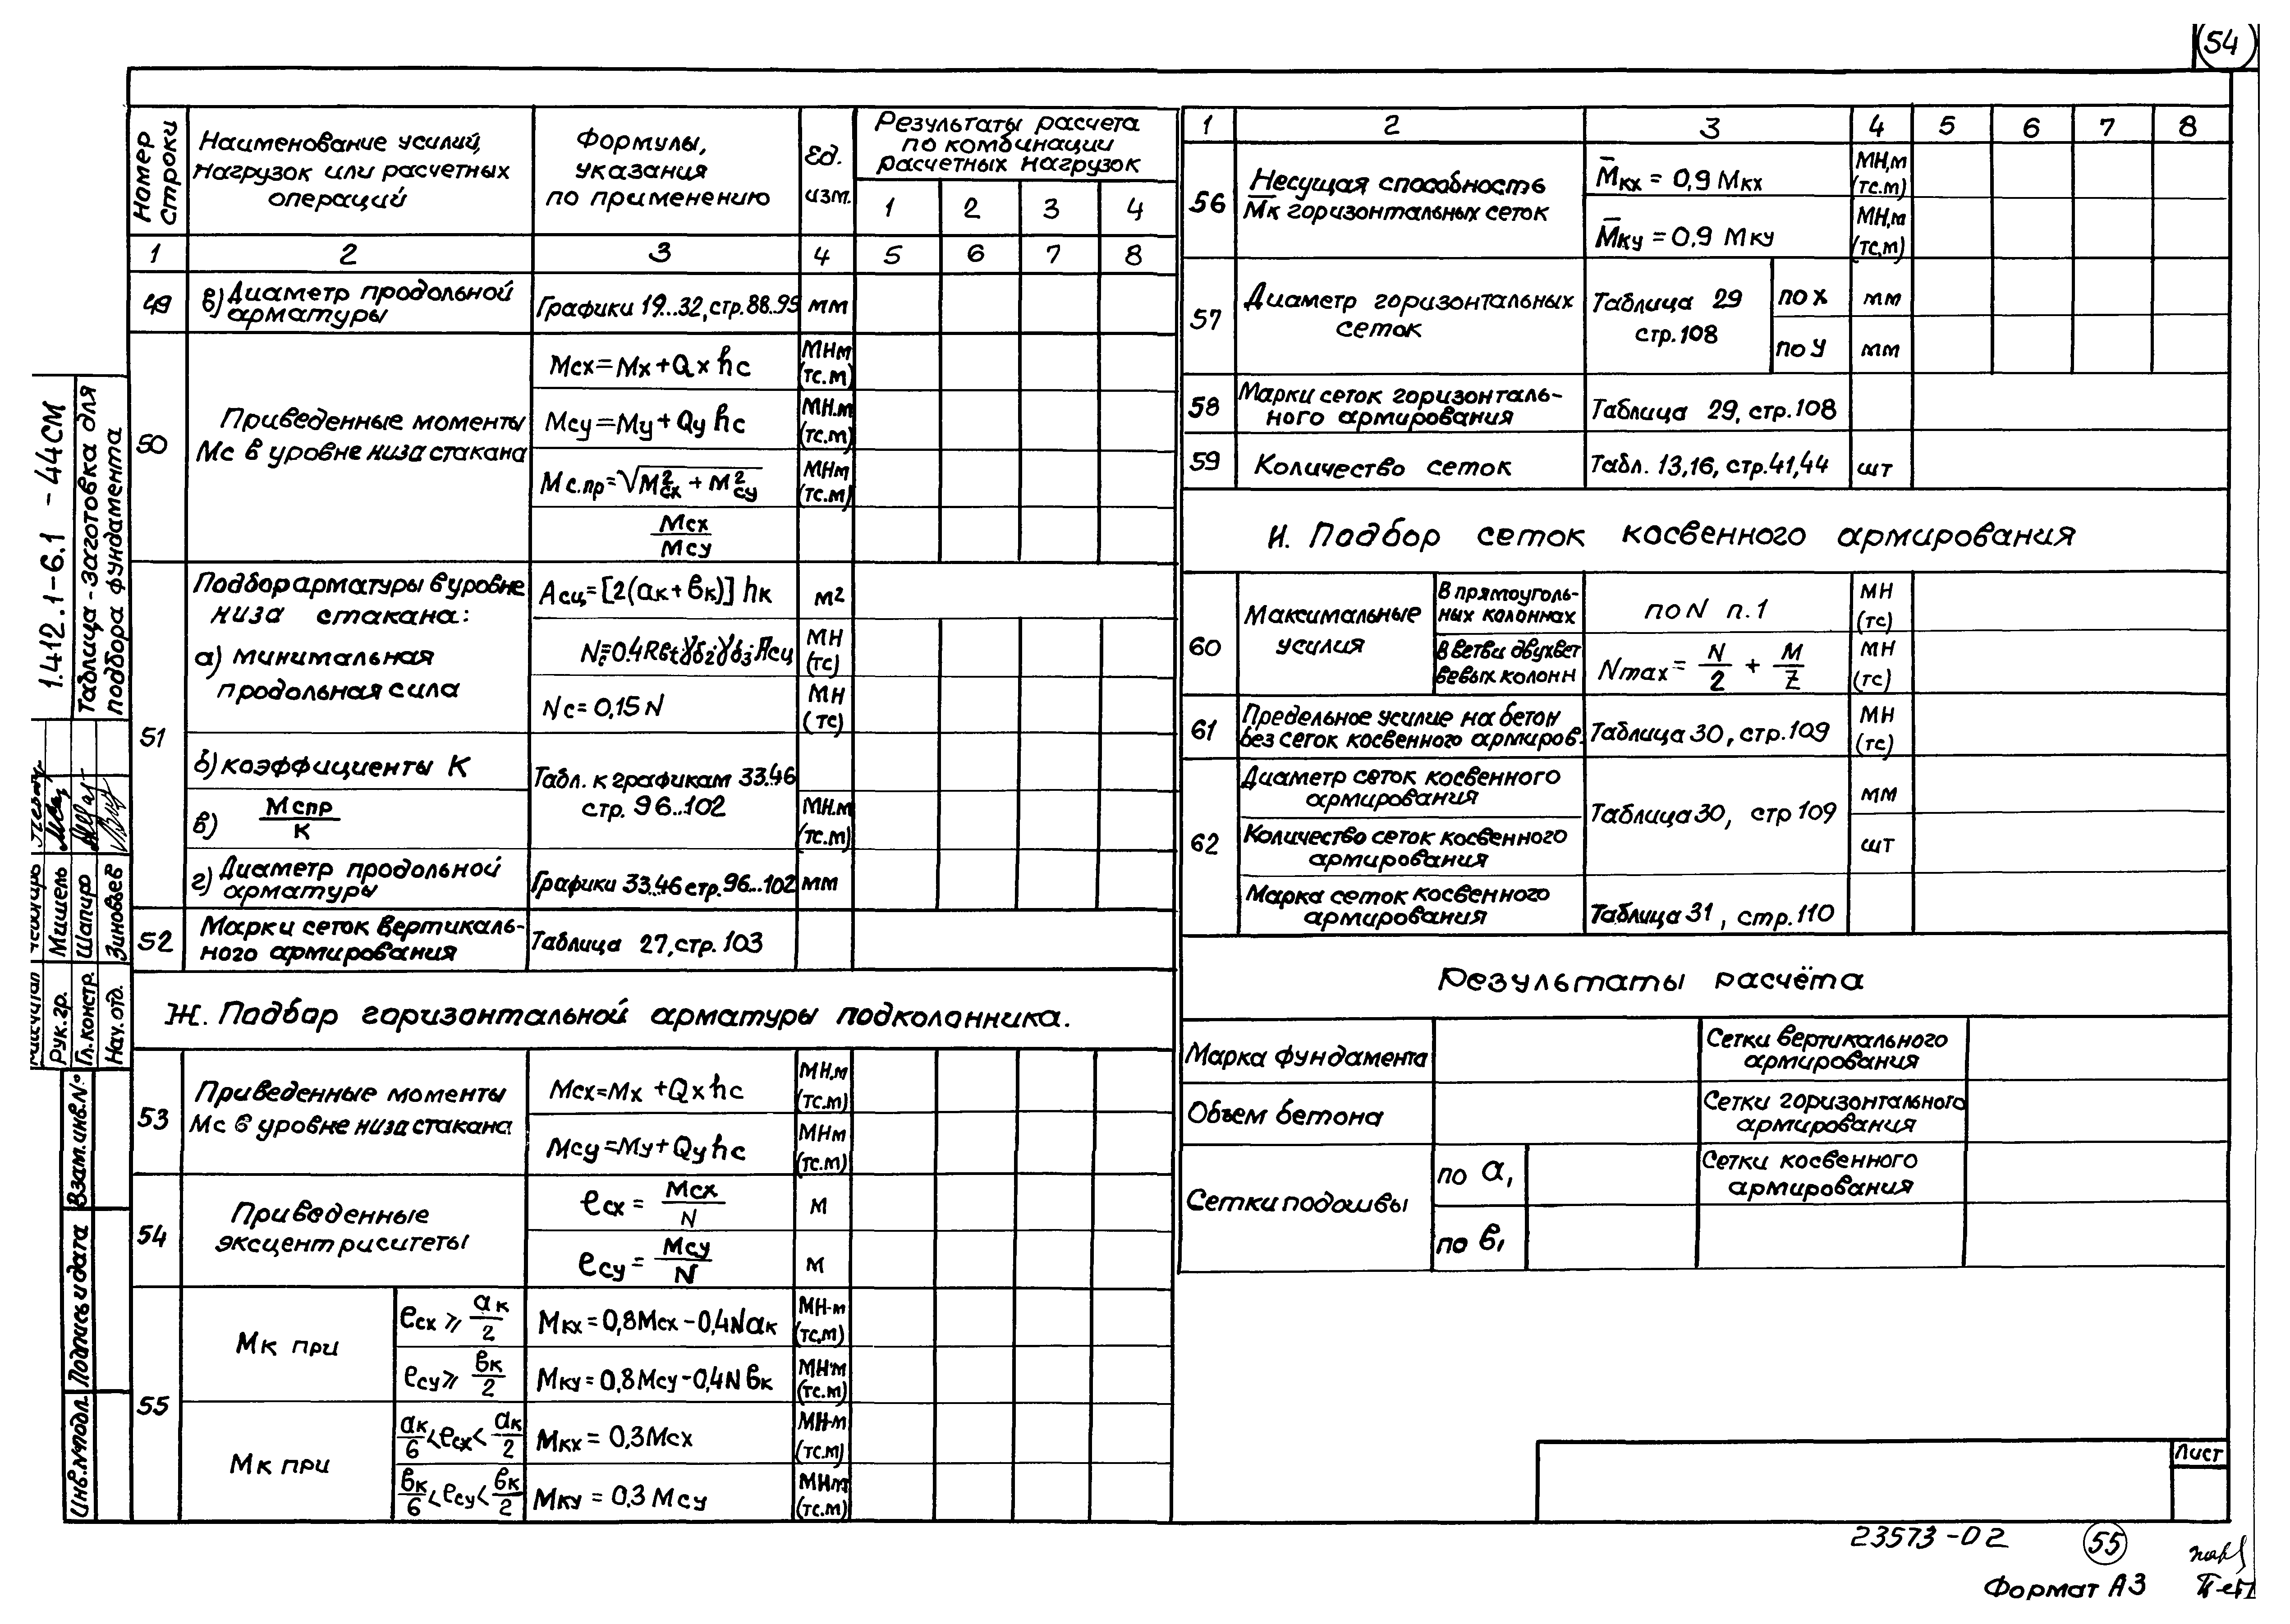 54
Номер строки
Наименование усилий, нагрузок или расчетных операций
Формулы, указания по применению
Ед. изм.
Результаты расчета по комбинации расчетных нагрузок
1 2 3 4
1 2 3 4 5 6 7 8
49 в) Диаметр продольной арматуры Графики 19...32, стр. 88..95 мм
50 Приведенные моменты Мс в уровне низа стакана
Mcx = Mx + Qx hc МНм (тс.м)
Mcy = My + Qy hc МН.м (тс.м)
Mс.пр = √M²cx + M²cy МНм (тс.м)
Mcx / Mcy
51 Подбор арматуры в уровне низа стакана:
Aсц = [2(ак + вк)] hк м²
а) минимальная продольная сила
Nc = 0.4Rbt γб2 · γб3 · Aсц МН (тс)
Nc = 0,15 N МН (тс)
б) коэффициенты К
Табл. к графикам 33..46 стр. 96..102
в) Мспр / К МН.м (тс.м)
г) Диаметр продольной арматуры Графики 33..46 стр. 96..102 мм
52 Марки сеток вертикального армирования Таблица 27, стр. 103
Ж. Подбор горизонтальной арматуры подколонника.
53 Приведенные моменты Мс в уровне низа стакана
Mcx = Mx + Qx hc МН.м (тс.м)
Mcy = My + Qy hc МНм (тс.м)
54 Приведенные эксцентриситеты
ecx = Mcx / N м
ecy = Mcy / N м
55 Мк при ecx ⩾ ак/2 Mкх = 0,8Mcx - 0,4Nак МН·м (тс.м)
ecy ⩾ вк/2 Mку = 0,8Mcy - 0,4N вк МН·м (тс.м)
Мк при ак/6 < ecx < ак/2 Mкх = 0,3Mcx МН·м (тс.м)
вк/6 < ecy < вк/2 Mку = 0,3 Mcy МНм (тс.м)
1 2 3 4 5 6 7 8
56 Несущая способность M̅к горизонтальных сеток
M̅кх = 0,9 Mкх МН,м (тс.м)
M̅ку = 0,9 Mку МН,м (тс,м)
57 Диаметр горизонтальных сеток Таблица 29 стр. 108
по х мм
по у мм
58 Марки сеток горизонтального армирования Таблица 29, стр. 108
59 Количество сеток Табл. 13,16, стр. 41,44 шт
И. Подбор сеток косвенного армирования
60 Максимальные усилия
В прямоугольных колоннах по N п. 1 МН (тс)
В ветви двухветвевых колонн Nmax = N/2 + M/Z МН (тс)
61 Предельное усилие на бетон без сеток косвенного армиров. Таблица 30, стр. 109 МН (тс)
62 Диаметр сеток косвенного армирования мм
Таблица 30, стр 109
Количество сеток косвенного армирования шт
Марка сеток косвенного армирования Таблица 31, стр. 110
Результаты расчёта
Марка фундамента
Сетки вертикального армирования
Объем бетона
Сетки горизонтального армирования
Сетки подошвы
по а,
по в,
Сетки косвенного армирования
Лист
1.412.1-6.1 -44СМ
Таблица-заготовка для подбора фундамента
Рук. гр. Мишель
Гл. констр. Шапиро
Нач. отд. Зиновьев
Взам. инв. №
Подпись и дата
Инв. № подл.
23573-02
55
Формат А3